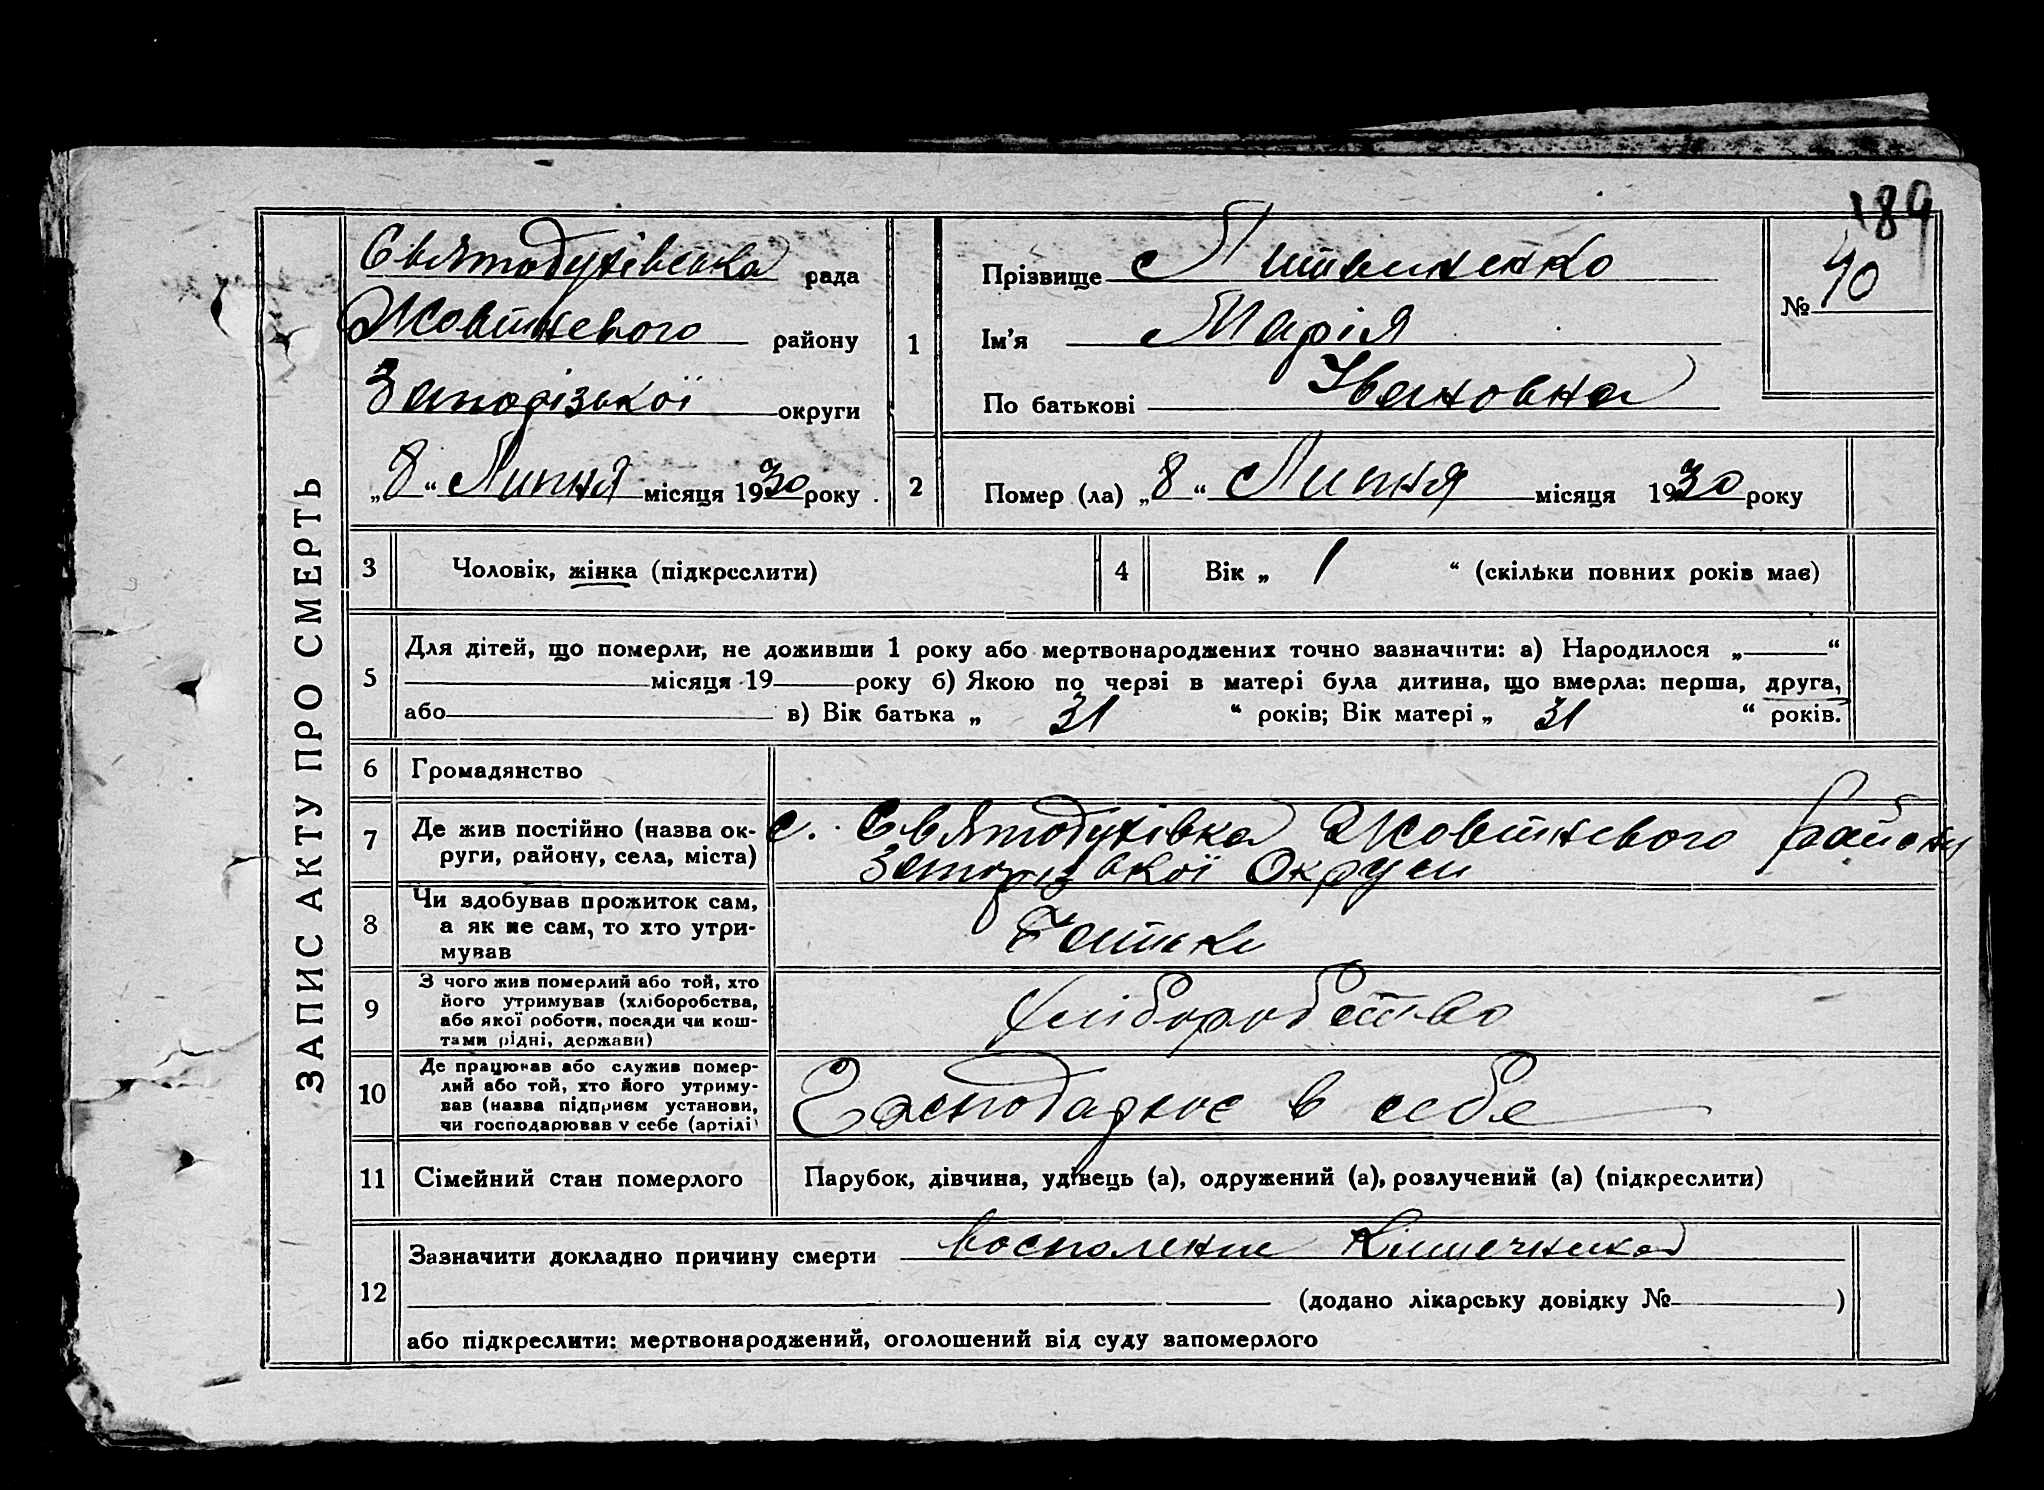 189
ЗАПИС АКТУ ПРО СМЕРТЬ
Святодухівська рада
Жовтневого району
Запорізької округи
„8“ Липня місяця 1930 року.
1
Прізвище Литвиненко
Ім'я Марія
По батькові Івановна
№ 40
2
Помер (ла) „8“ Липня місяця 1930 року
3
Чоловік, жінка (підкреслити)
4
Вік „ 1 “ (скільки повних років має)
5
Для дітей, що померли, не доживши 1 року або мертвонароджених точно зазначити: а) Народилося „ “
місяця 19 року б) Якою по черзі в матері була дитина, що вмерла: перша, друга,
або в) Вік батька „ 31 “ років; Вік матері „ 31 “ років.
6
Громадянство
7
Де жив постійно (назва ок-
руги, району, села, міста)
с. Святодухівка Жовтневого району
Запорізької Округи
8
Чи здобував прожиток сам,
а як не сам, то хто утри-
мував
Батьки
9
З чого жив померлий або той, хто
його утримував (хліборобства,
або якої роботи, посади чи кош-
тами рідні, держави)
хліборобство
10
Де працював або служив помер-
лий або той, хто його утриму-
вав (назва підприєм установи,
чи господарював у себе (артілі)
Господарює в себе
11
Сімейний стан померлого
Парубок, дівчина, удівець (а), одружений (а), розлучений (а) (підкреслити)
12
Зазначити докладно причину смерти восполение Кишечника
(додано лікарську довідку № )
або підкреслити: мертвонароджений, оголошений від суду запомерлого